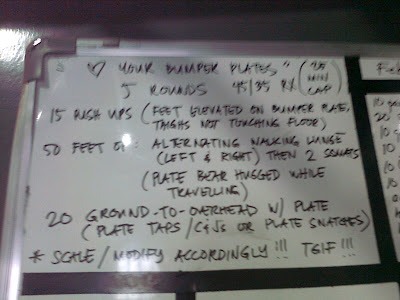 ♡ YOUR BUMPER PLATES" (20 MIN CAP)
5 ROUNDS 45/35 RX
15 PUSH UPS (FEET ELEVATED ON BUMPER PLATE,
THIGHS NOT TOUCHING FLOOR)
50 FEET OF: ALTERNATING WALKING LUNGE
(LEFT & RIGHT) THEN 2 SQUATS
(PLATE BEAR HUGGED WHILE
TRAVELLING)
20 GROUND-TO-OVERHEAD W/ PLATE
(PLATE TAPS/C&Js OR PLATE SNATCHES)
* SCALE/MODIFY ACCORDINGLY!!! TGIF!!!